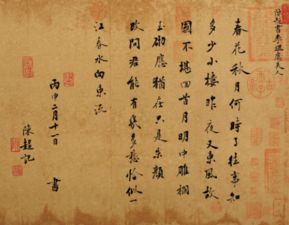 春花秋月何時了往事知
多少小樓昨夜又東風故
國不堪回首月明中雕欄
玉砌應猶在只是朱顏
改問君能有幾多愁恰似一
江春水向東流
丙申二月十一日
書
陳超記